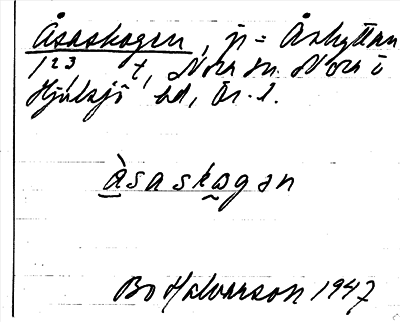 Åsaskogen, n = Åshyttan
1 2 3 t, Nora sn. Nora i
Hjulsjö bd, Ör. l.
àsaskogən
Bo Halvarson 1947